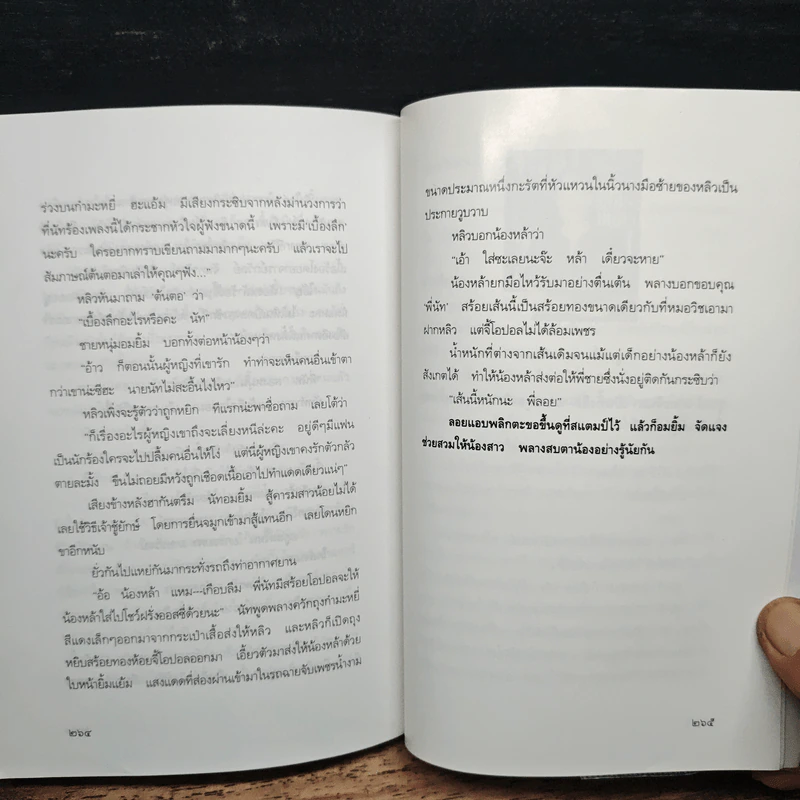 ร่วงบนกำมะหยี่ ฮะแอ้ม มีเสียงกระซิบจากหลังม่านวงการว่า
ที่นัทร้องเพลงนี้ได้กระชากหัวใจผู้ฟังขนาดนี้ เพราะมี'เบื้องลึก'
นะครับ ใครอยากทราบเขียนถามมามากๆนะครับ แล้วเราจะไป
สัมภาษณ์ต้นตอมาเล่าให้คุณๆฟัง..."
หลิวหันมาถาม 'ต้นตอ' ว่า
"เบื้องลึกอะไรหรือคะ นัท"
ชายหนุ่มอมยิ้ม บอกทั้งต่อหน้าน้องๆว่า
"อ้าว ก็ตอนนั้นผู้หญิงที่เขารัก ทำท่าจะเห็นคนอื่นเข้าตา
กว่าเขาน่ะซีฮะ นายนัทไม่สะอื้นไงไหว"
หลิวเพิ่งจะรู้ตัวว่าถูกหยิก ทีแรกน่ะพาซื่อถาม เลยโต้ว่า
"ก็เรื่องอะไรผู้หญิงเขาถึงจะเลี่ยงหนีล่ะคะ อยู่ดีๆมีแฟน
เป็นนักร้องใครจะไปปลื้มคนอื่นให้โง่ แต่นี่ผู้หญิงเขาคงรักตัวกลัว
ตายละมั้ง ขืนไม่ถอยมีหวังถูกเชือดเนื้อเอาไปทำแดดเดียวแน่ๆ"
เสียงข้างหลังฮากันตรึม นัทอมยิ้ม สู้คารมสาวน้อยไม่ได้
เลยใช้วิธีเจ้าชู้ยักษ์ โดยการยื่นจมูกเข้ามาสู้แทนอีก เลยโดนหยิก
ขาอีกหนับ
ยั่วกันไปแหย่กันมากระทั่งรถถึงท่าอากาศยาน
"อ้อ น้องหล้า แหม---เกือบลืม พี่นัทมีสร้อยโอปอลจะให้
น้องหล้าใส่ไปโชว์ฝรั่งออสซี่ด้วยนะ" นัทพูดพลางควักถุงกำมะหยี่
สีแดงเล็กๆออกมาจากกระเป๋าเสื้อส่งให้หลิว และหลิวก็เปิดถุง
หยิบสร้อยทองห้อยจี้โอปอลออกมา เอี้ยวตัวมาส่งให้น้องหล้าด้วย
ใบหน้ายิ้มแย้ม แสงแดดที่ส่องผ่านเข้ามาในรถฉายจับเพชรน้ำงาม
๒๖๔
ขนาดประมาณหนึ่งกะรัตที่หัวแหวนในนิ้วนางมือซ้ายของหลิวเป็น
ประกายวูบวาบ
หลิวบอกน้องหล้าว่า
"เอ้า ใส่ซะเลยนะจ๊ะ หล้า เดี๋ยวจะหาย"
น้องหล้ายกมือไหว้รับมาอย่างตื่นเต้น พลางบอกขอบคุณ
'พี่นัท' สร้อยเส้นนี้เป็นสร้อยทองขนาดเดียวกับที่หมอวิชเอามา
ฝากหลิว แต่จี้โอปอลไม่ได้ล้อมเพชร
น้ำหนักที่ต่างจากเส้นเดิมจนแม้แต่เด็กอย่างน้องหล้าก็ยัง
สังเกตได้ ทำให้น้องหล้าส่งต่อให้พี่ชายซึ่งนั่งอยู่ติดกันกระซิบว่า
"เส้นนี้หนักนะ พี่ลอย"
ลอยแอบพลิกตะขอขึ้นดูที่สแตมป์ไว้ แล้วก็อมยิ้ม จัดแจง
ช่วยสวมให้น้องสาว พลางสบตาน้องอย่างรู้นัยกัน
๒๖๕